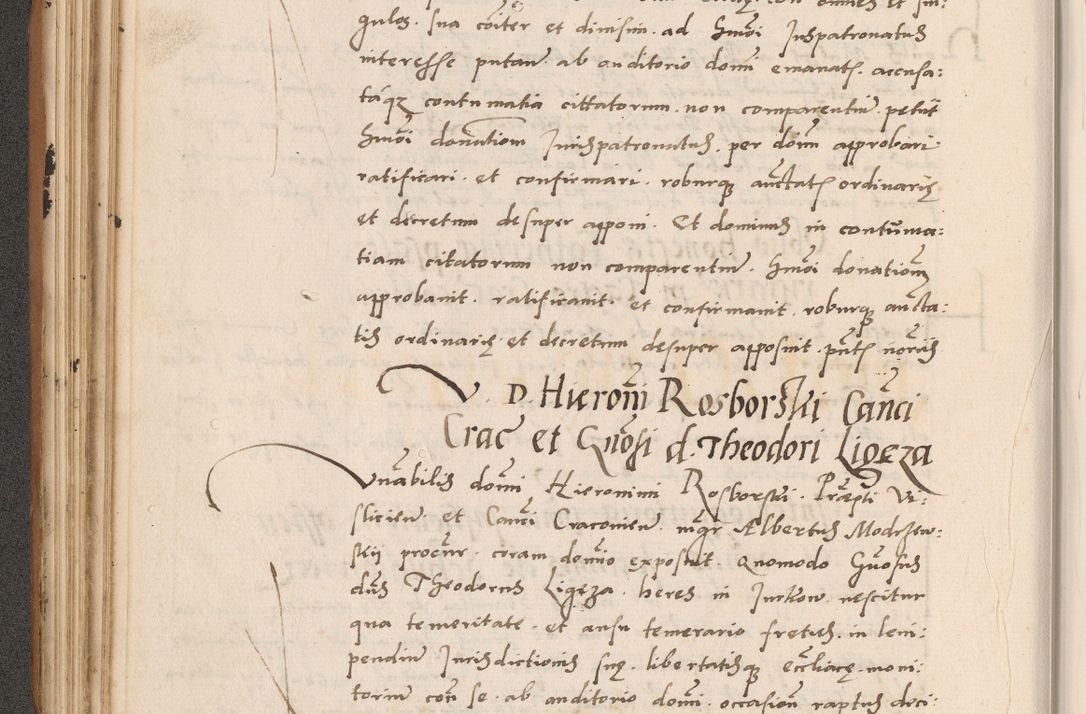 gulos. sua cōiter et divisim. ad hmōi Juspatronatus
interesse putañ ab auditorio domī emanatꝭ. accusa:
taqȝ contumatia cittatorum. non comparentiū. petiit
hmōi donationem Jurispatronatus. per dōm̄ approbari
ratificari. et confirmari. roburqȝ auctatꝭ ordinarię
et decretum desuper apponi. Et dominus in contuma:
tiam citatorum non comparentiū. hmōi donationem
approbavit. ratificavit. et confirmavit. roburqȝ aucta:
tis ordinarię. et decretum desuper apposuit. pñtꝭ
V. D. Hieronīmi Rosborski Canci
Crac̄ et Gn̄osi d. Theodori Ligeza
Vn̄abilis domī Hieronimi Rosborski. Pr̄epti Vi:
slicieñ et Canci Cracovieñ. mgr̄ Albertus Modrzew:
skii procur̄. coram domīo exposuit. Quomodo Gn̄osus
dn̄s Theodorus Ligęza. heres in Jurkow. nescitur
qua temeritate. et ausu temerario fretus. in levi:
pendiū Jurisdictionis suę. libertatisqȝ eccliacę. moni:
toriū cont̄ se. ab auditorio domī. occasione raptus deci: